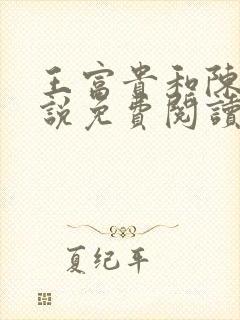 王富貴和陳
說免費閱讀
夏纪年